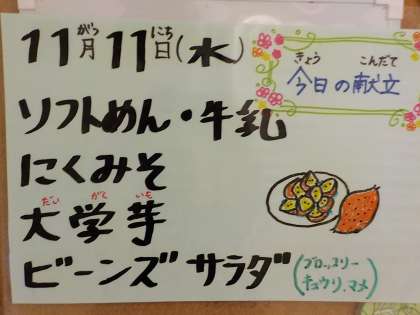 11月11日(水)
がつ にち
きょう こんだて
今日の献立
ソフトめん・牛乳
にくみそ
だい がく いも
大学芋
ビーンズサラダ(ブロッコリー
キュウリ、マメ)